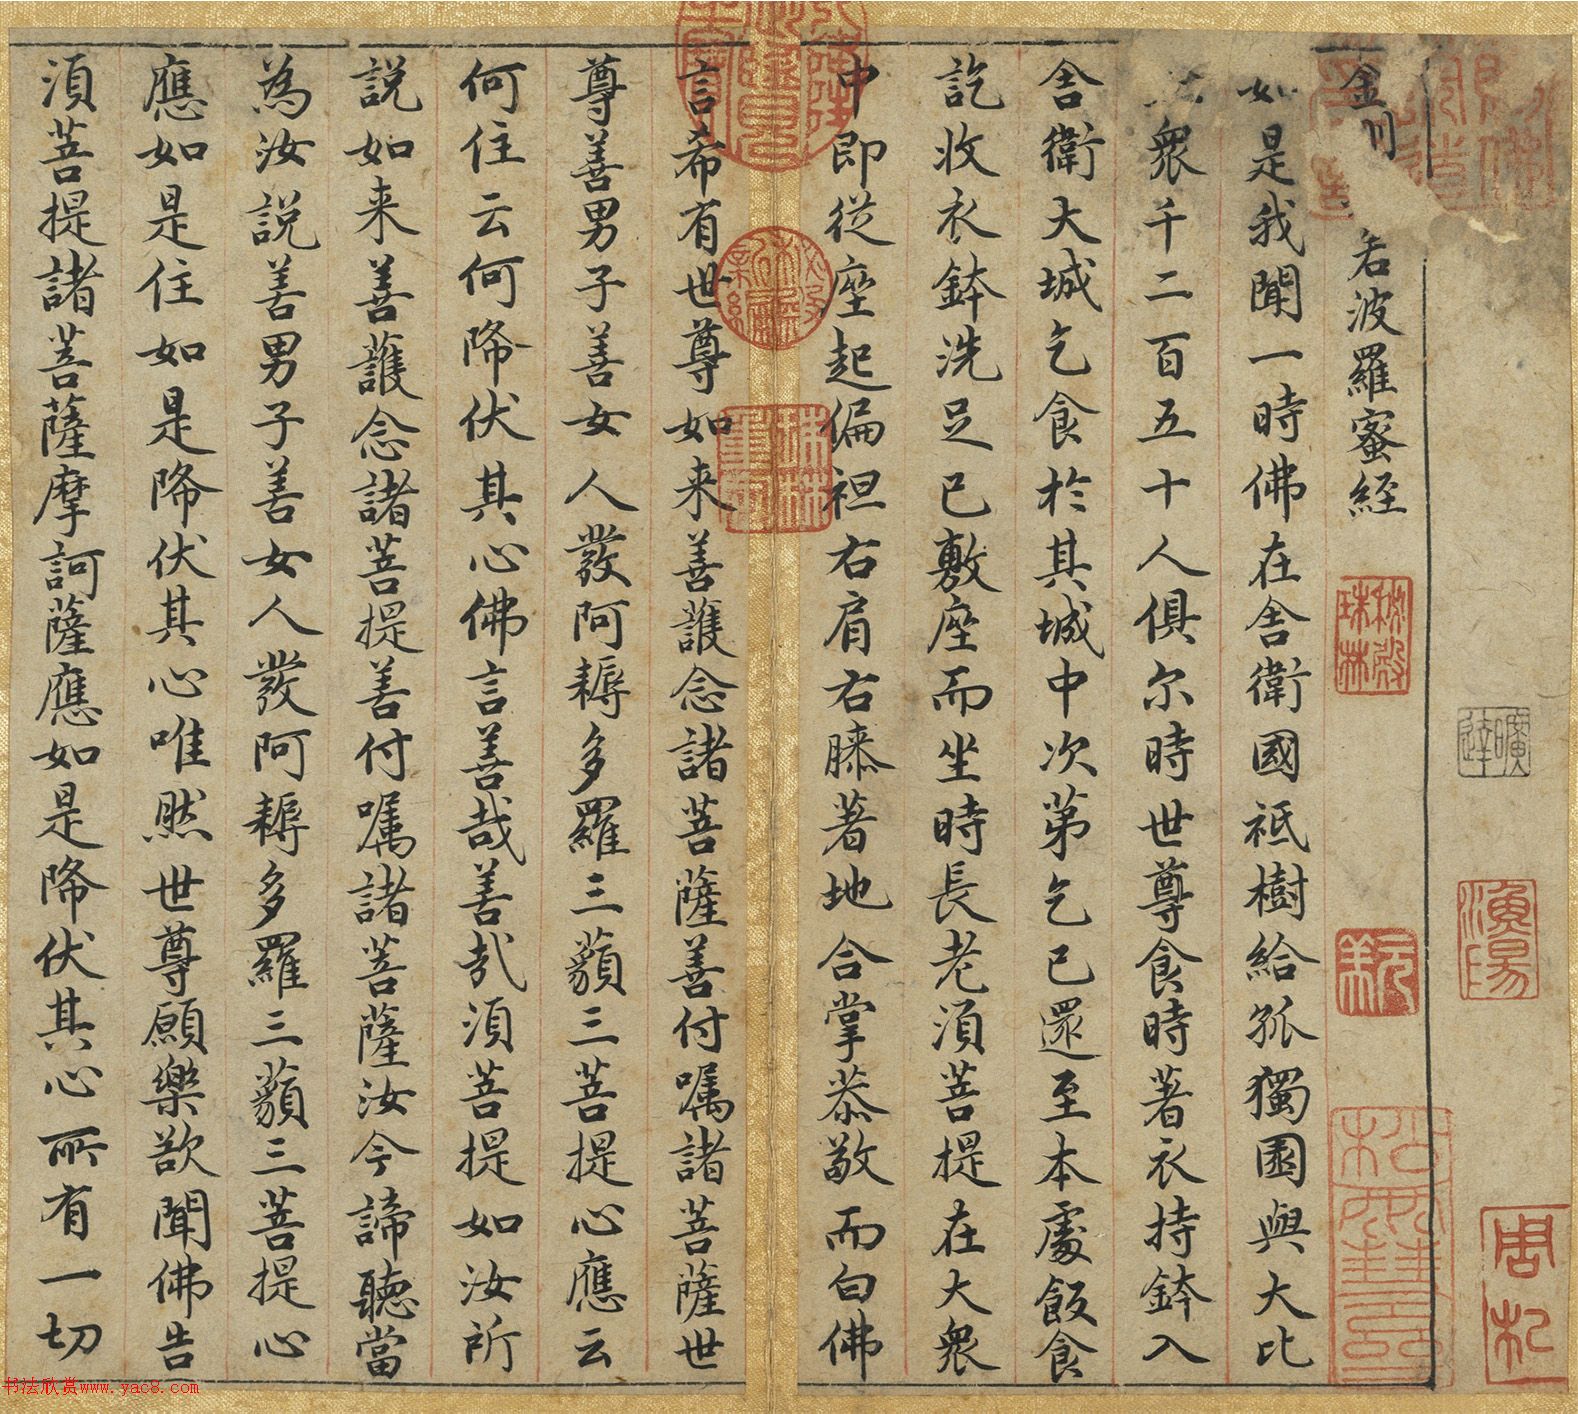 金剛般若波羅蜜經
如是我聞一時佛在舍衛國祇樹給孤獨園與大比
衆千二百五十人俱尒時世尊食時著衣持鉢入
舍衛大城乞食於其城中次第乞已還至本處飯食
訖收衣鉢洗足已敷座而坐時長老湏菩提在大衆
中即從座起偏袒右肩右膝著地合掌恭敬而白佛
言希有世尊如来善護念諸菩薩善付嘱諸菩薩世
尊善男子善女人發阿耨多羅三藐三菩提心應云
何住云何降伏其心佛言善哉善哉湏菩提如汝所
説如来善護念諸菩提善付嘱諸菩薩汝今諦聽當
為汝説善男子善女人發阿耨多羅三藐三菩提心
應如是住如是降伏其心唯然世尊願樂欲聞佛告
湏菩提諸菩薩摩訶薩應如是降伏其心所有一切
曠達
秘殿珠林
书法欣赏www.yac8.com